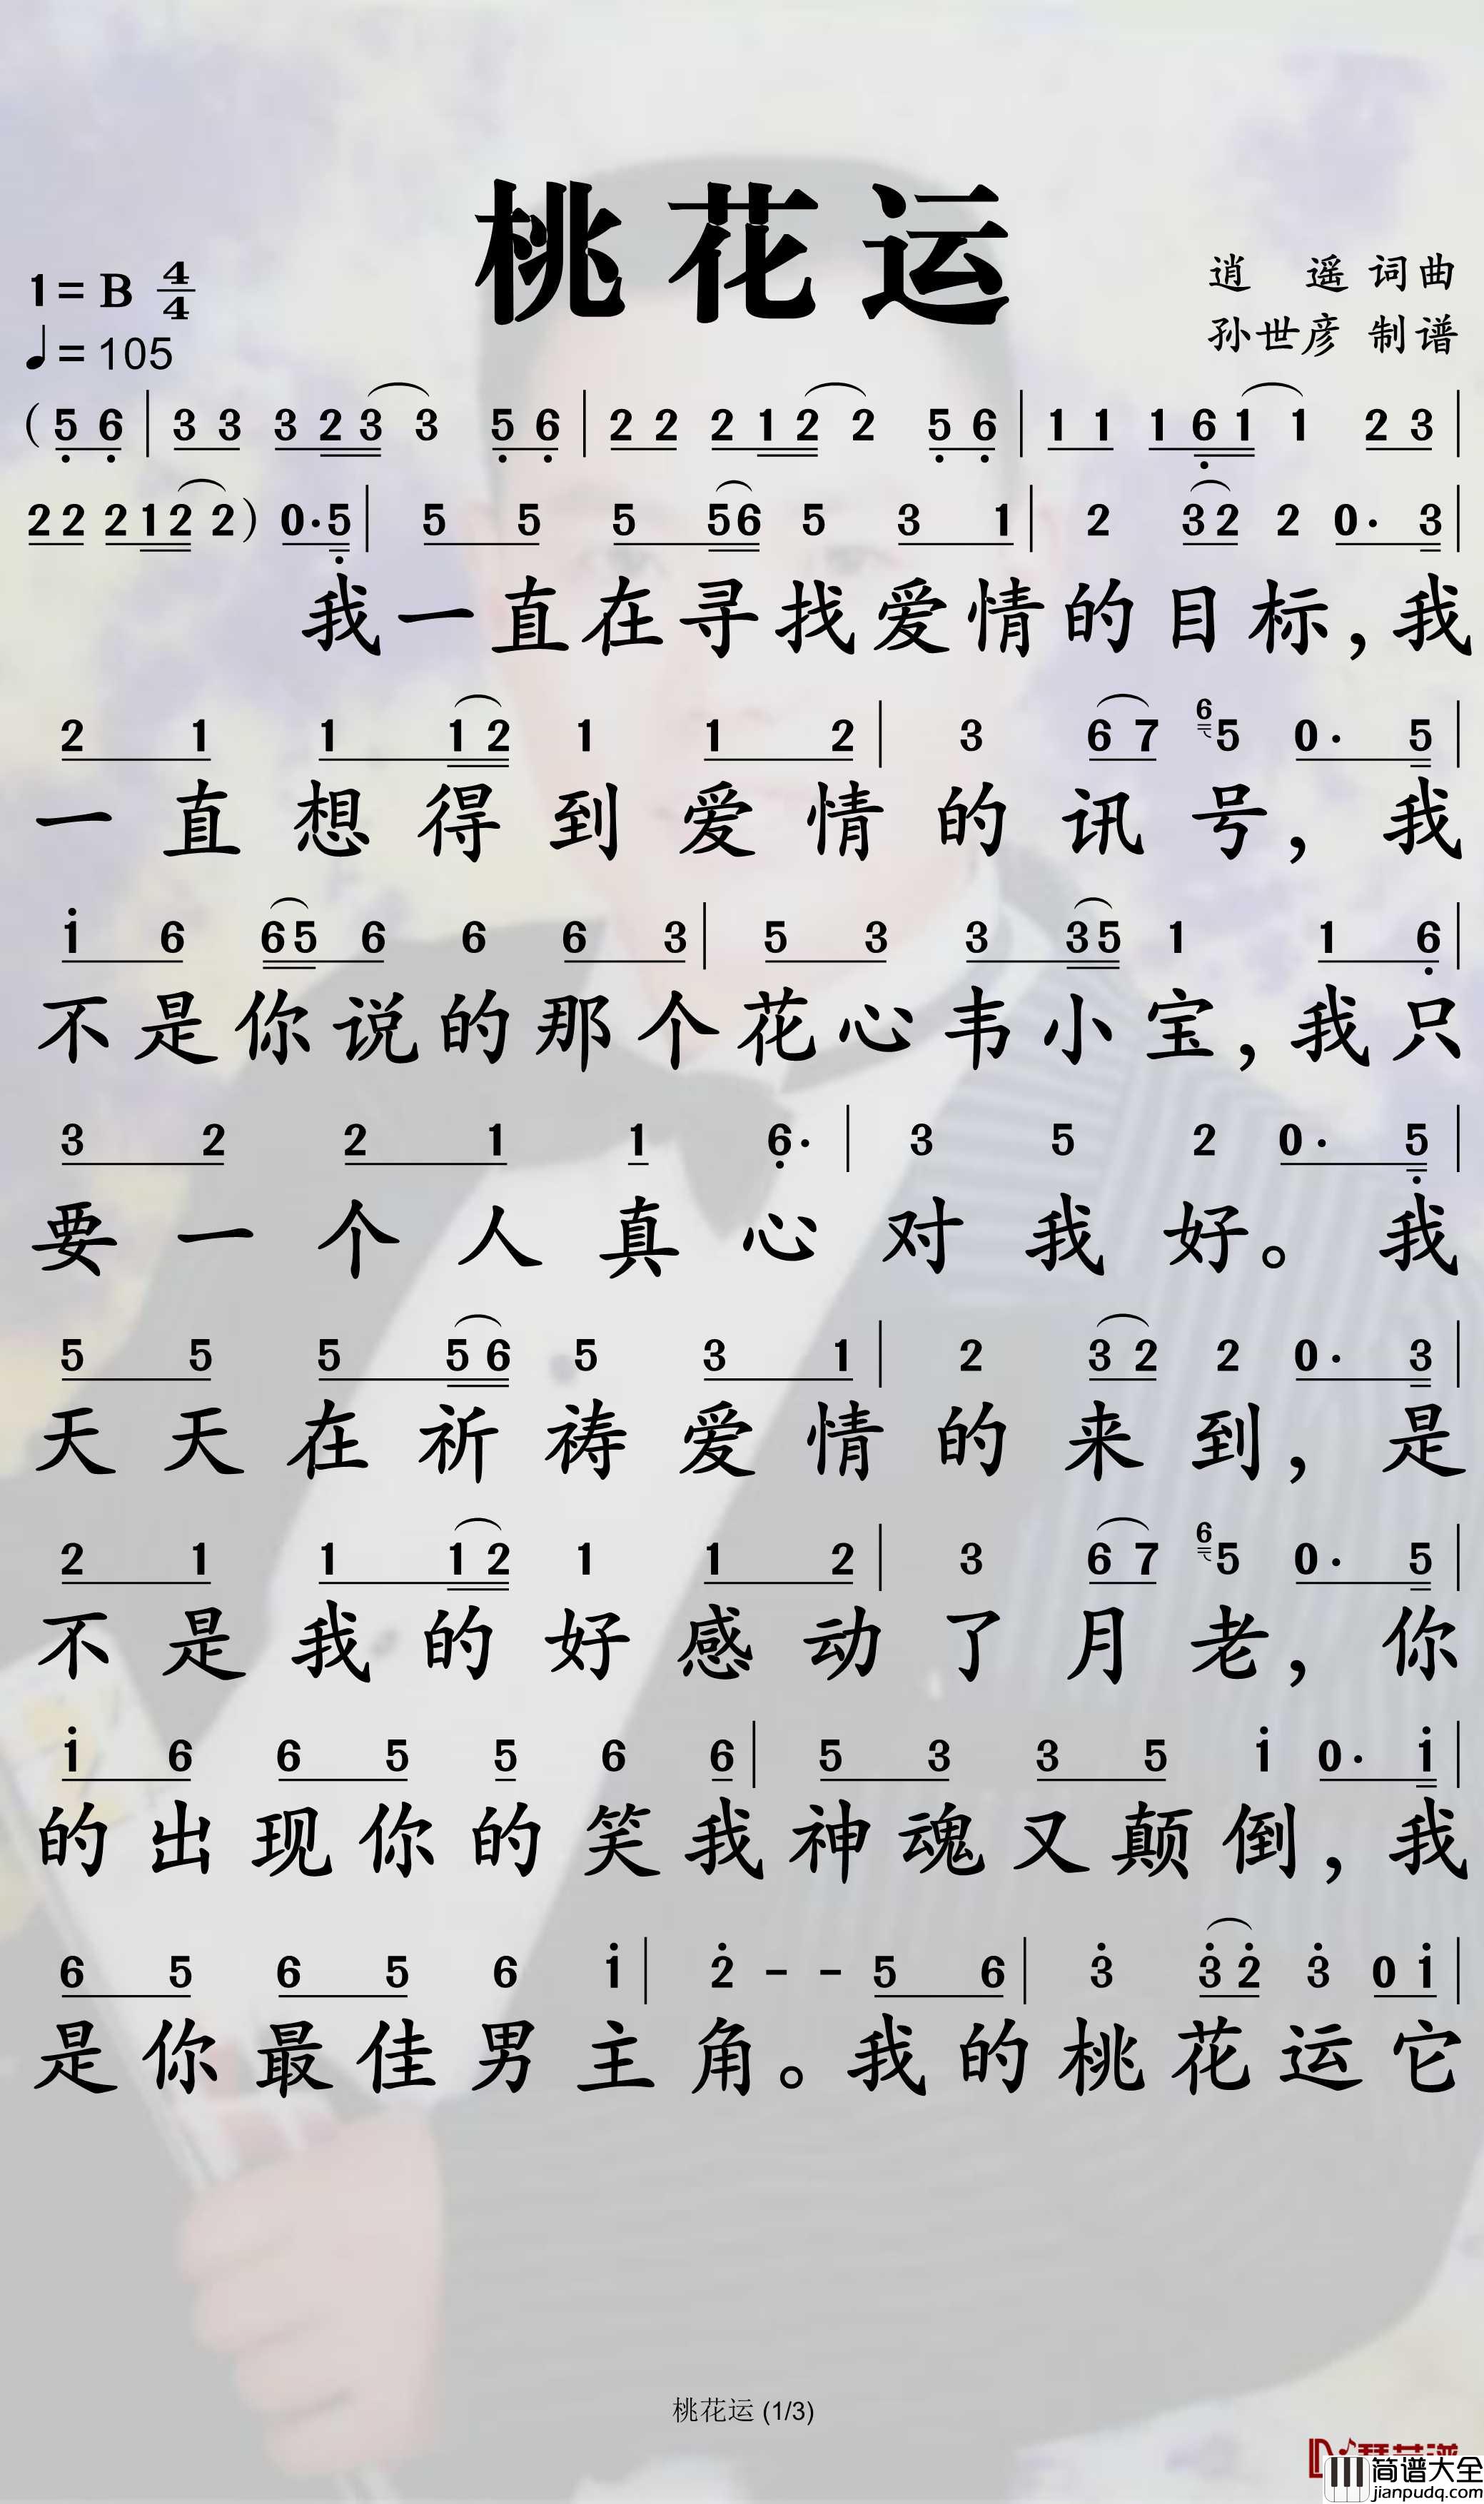 桃花运
1=B 4/4
逍 遥 词曲
♩=105
孙世彦 制谱
( 5 6 | 3 3 3 2 3 3 5 6 | 2 2 2 1 2 2 5 6 | 1 1 1 6 1 1 2 3 |
2 2 2 1 2 2 ) 0· 5 | 5 5 5 5 6 5 3 1 | 2 3 2 2 0· 3 |
我一直在寻找爱情的目标，我
2 1 1 1 2 1 1 2 | 3 6 7 6 5 0· 5 |
一直想得到爱情的讯号，我
1 6 6 5 6 6 6 3 | 5 3 3 3 5 1 1 6 |
不是你说的那个花心韦小宝，我只
3 2 2 1 1 6· | 3 5 2 0· 5 |
要一个人真心对我好。我
5 5 5 5 6 5 3 1 | 2 3 2 2 0· 3 |
天天在祈祷爱情的来到，是
2 1 1 1 2 1 1 2 | 3 6 7 6 5 0· 5 |
不是我的好感动了月老，你
1 6 6 5 5 6 6 | 5 3 3 5 1 0· 1 |
的出现你的笑我神魂又颠倒，我
6 5 6 5 6 1 | 2 - - 5 6 | 3 3 2 3 0 1 |
是你最佳男主角。我的桃花运它
桃花运 (1/3)
简谱大全
jianpudq.com